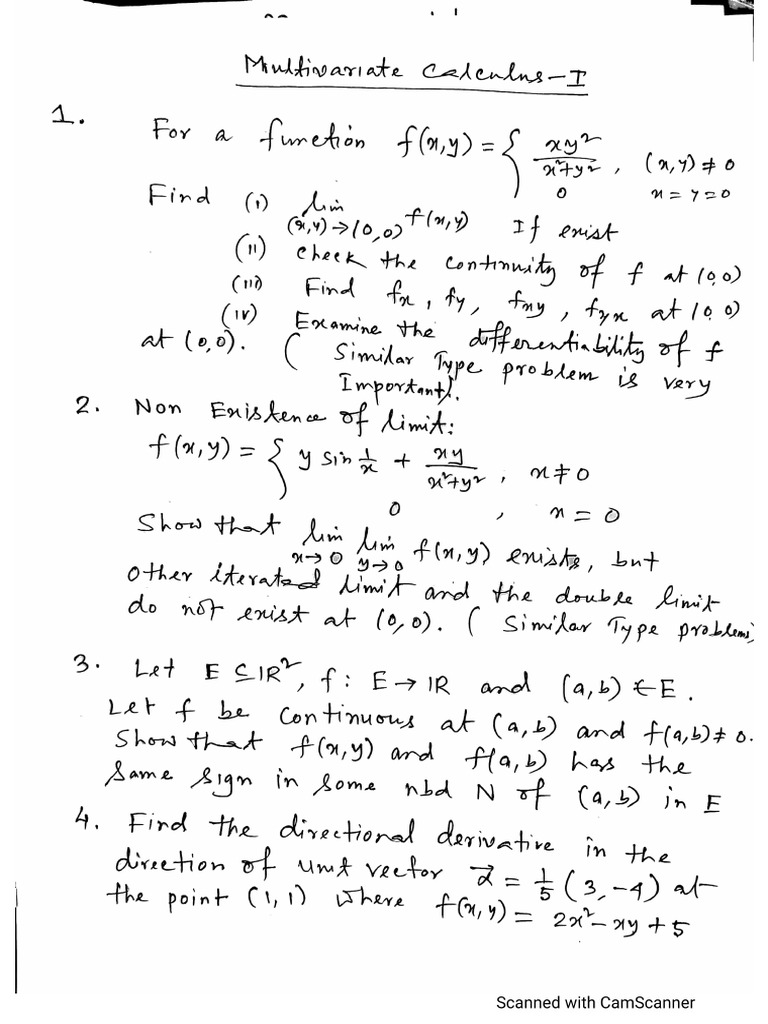 Multivariate Calculus-I
1. For a function f(x,y) = { xy²/x²+y² , (x,y) ≠ 0
0 x = y = 0
Find (i) lim (x,y)→(0,0) f(x,y) If exist
(ii) Check the continuity of f at (0,0)
(iii) Find fx, fy, fxy, fyx at (0,0)
(iv) Examine the differentiability of f
at (0,0). ( Similar Type problem is very
Important).
2. Non Existence of limit:
f(x,y) = { y sin 1/x + xy/x²+y² , x ≠ 0
0 , x = 0
Show that lim x→0 lim y→0 f(x,y) exists, but
other iterated limit and the double limit
do not exist at (0,0). ( Similar Type problems)
3. Let E ⊆ IR², f: E → IR and (a,b) ∈ E.
Let f be continuous at (a,b) and f(a,b) ≠ 0.
Show that f(x,y) and f(a,b) has the
same sign in some nbd N of (a,b) in E
4. Find the directional derivative in the
direction of unit vector α⃗ = 1/5 (3,-4) at
the point (1,1) where f(x,y) = 2x²-xy+5
Scanned with CamScanner